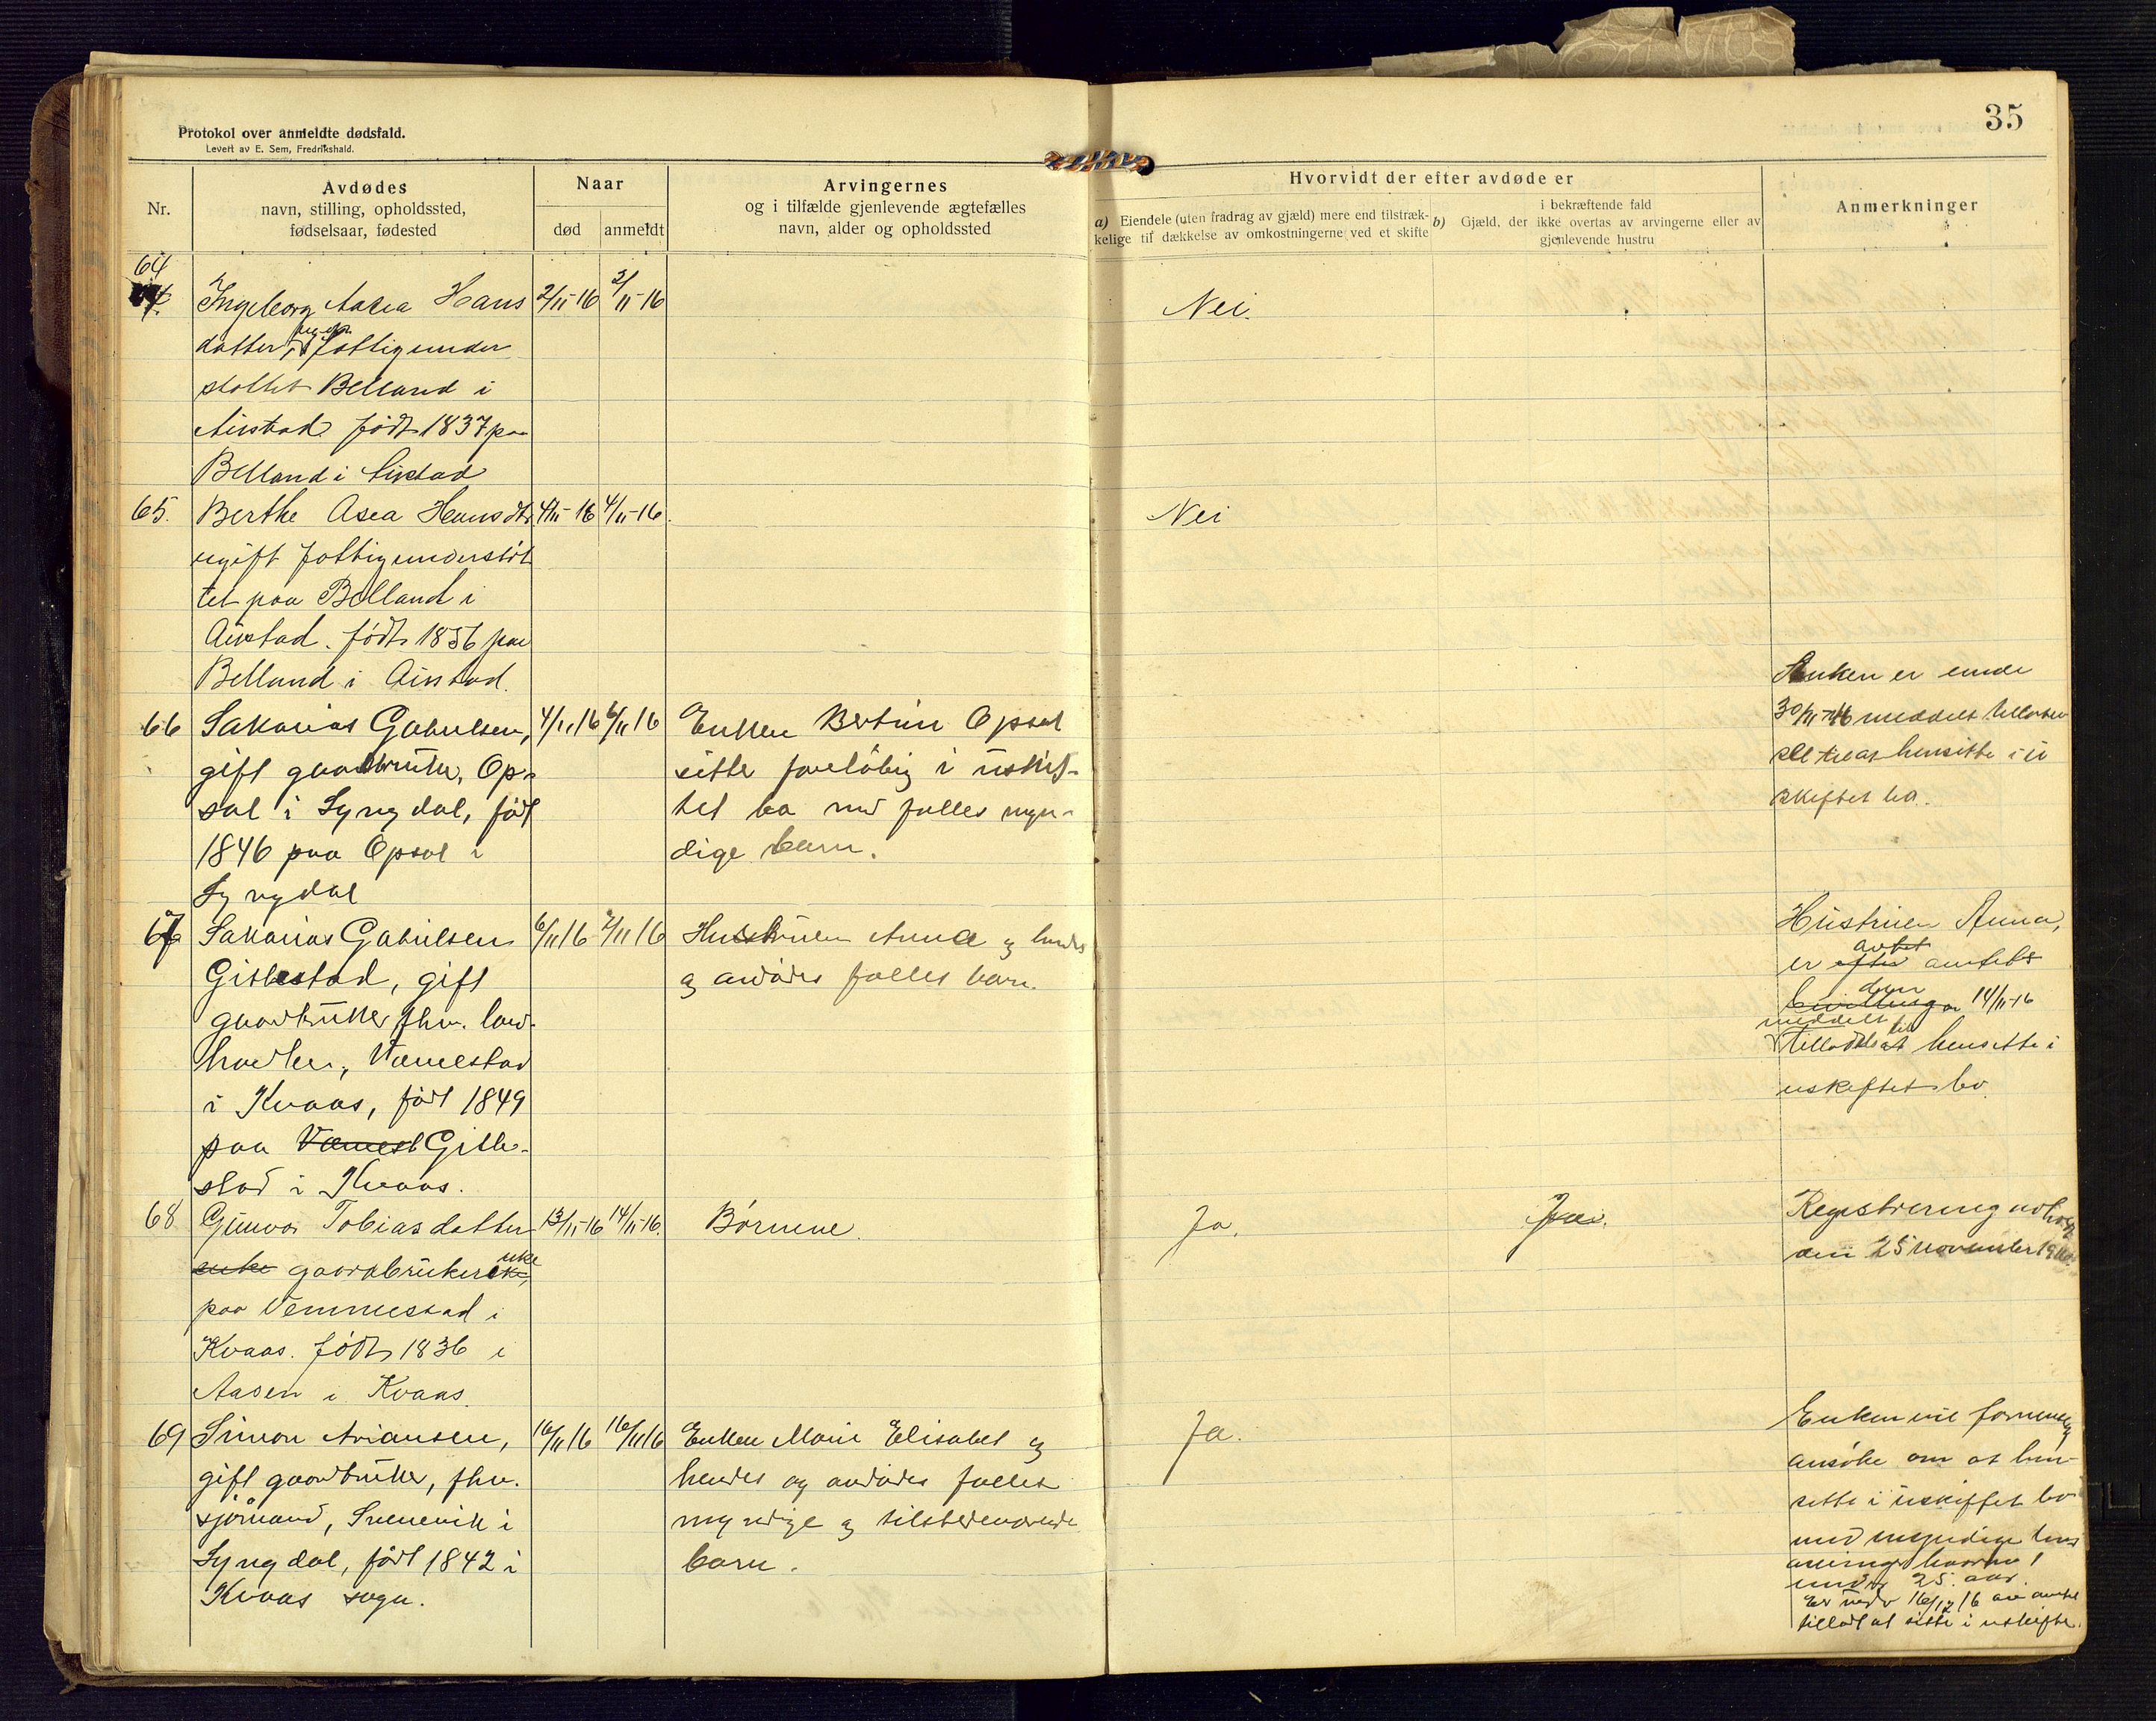 35
Protokol over anmeldte dødsfald.
Levert av E. Sem, Fredrikshald.
Nr.
Avdødes
navn, stilling, opholdssted,
fødselsaar, fødested
Naar
død
anmeldt
Arvingernes
og i tilfælde gjenlevende ægtefælles
navn, alder og opholdssted
Hvorvidt der efter avdøde er
a) Eiendele (uten fradrag av gjæld) mere end tilstræk-
kelige til dækkelse av omkostningerne ved et skifte
i bekræftende fald
b) Gjæld, der ikke overtas av arvingerne eller av
gjenlevende hustru
Anmerkninger
64
Ingeborg Aasea Hans 2/11-16 3/11-16 Nei.
datter, fattigunder
støttet Belland i
Austad født 1837 paa
Belland i Austad
65. Berthe Asea Hansdtr 4/11-16 4/11-16. Nei
ugift fattigunderstøt
tet paa Belland i
Austad. født 1856 paa
Belland i Austad.
66 Sakarias Gabrielsen, 4/11 16 6/11 16 Enken Bertine Opsal
gift gaardbruker, Op-
sal i Lyngdal, født
1846 paa Opsal i
Lyngdal
sitter foreløbig i uskif-
tet bo med fælles myn-
dige barn.
Enken er under
30/11-16 meddelt tilladel
se til at hensitte i u
skiftet bo.
67 Sakarias Gabrielsen 6/11 16 7/11 16 Hustruen Anna og hendes
Gitlestad, gift
gaardbruker fhv.
handler, Væmestad
i Kvaas, født 1849
paa Væmest Gitle-
stad i Kvaas.
og avdødes fælles barn.
Hustruen Anna,
er efter av amtets
bevilling den 14/11-16
meddelt
tilladelse til at hensitte i
uskiftet bo.
68 Gunvor Tobiasdatter 13/11-16 14/11-16. Børnene. Ja. Nei.
enke gaardbrukerenke,
paa Vemmestad i
Kvaas. født 1836 i
Aasen i Kvaas.
Registrering avholdt
den 25 november 1916.
69 Simon Ariansen, 16/11 16 16/11 16 Enken Marie Elisabet og Ja.
gift gaardbruker, fhv.
sjømand, Svenevik i
Lyngdal, født 1842 i
Kvaas sogn.
hendes og avdødes fælles
myndige og tilstedeværende
barn.
Enken vil
ansøke om at hen-
sitte i uskiftet bo
med myndige
arvinger hvorav 1
under 25 aar.
Er under 16/12 16 av amtet
tilladt at sitte i uskifte.